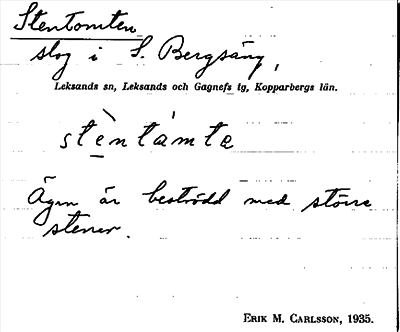 Stentomten
slog i S. Bergsäng,
Leksands sn, Leksands och Gagnefs tg, Kopparbergs län.
stèntámtα
Ägan är beströdd med större
stenar.
ERIK M. CARLSSON, 1935.